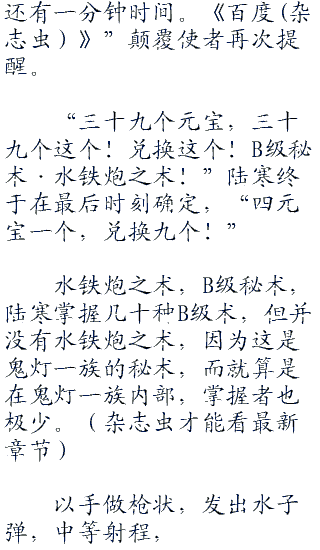 还有一分钟时间。《百度(杂
志虫)》”颠覆使者再次提
醒。
“三十九个元宝，三十
九个这个！兑换这个！B级秘
术·水铁炮之术！”陆寒终
于在最后时刻确定，“四元
宝一个，兑换九个！”
水铁炮之术，B级秘术，
陆寒掌握几十种B级术，但并
没有水铁炮之术，因为这是
鬼灯一族的秘术，而就算是
在鬼灯一族内部，掌握者也
极少。（杂志虫才能看最新
章节)
以手做枪状，发出水子
弹，中等射程，